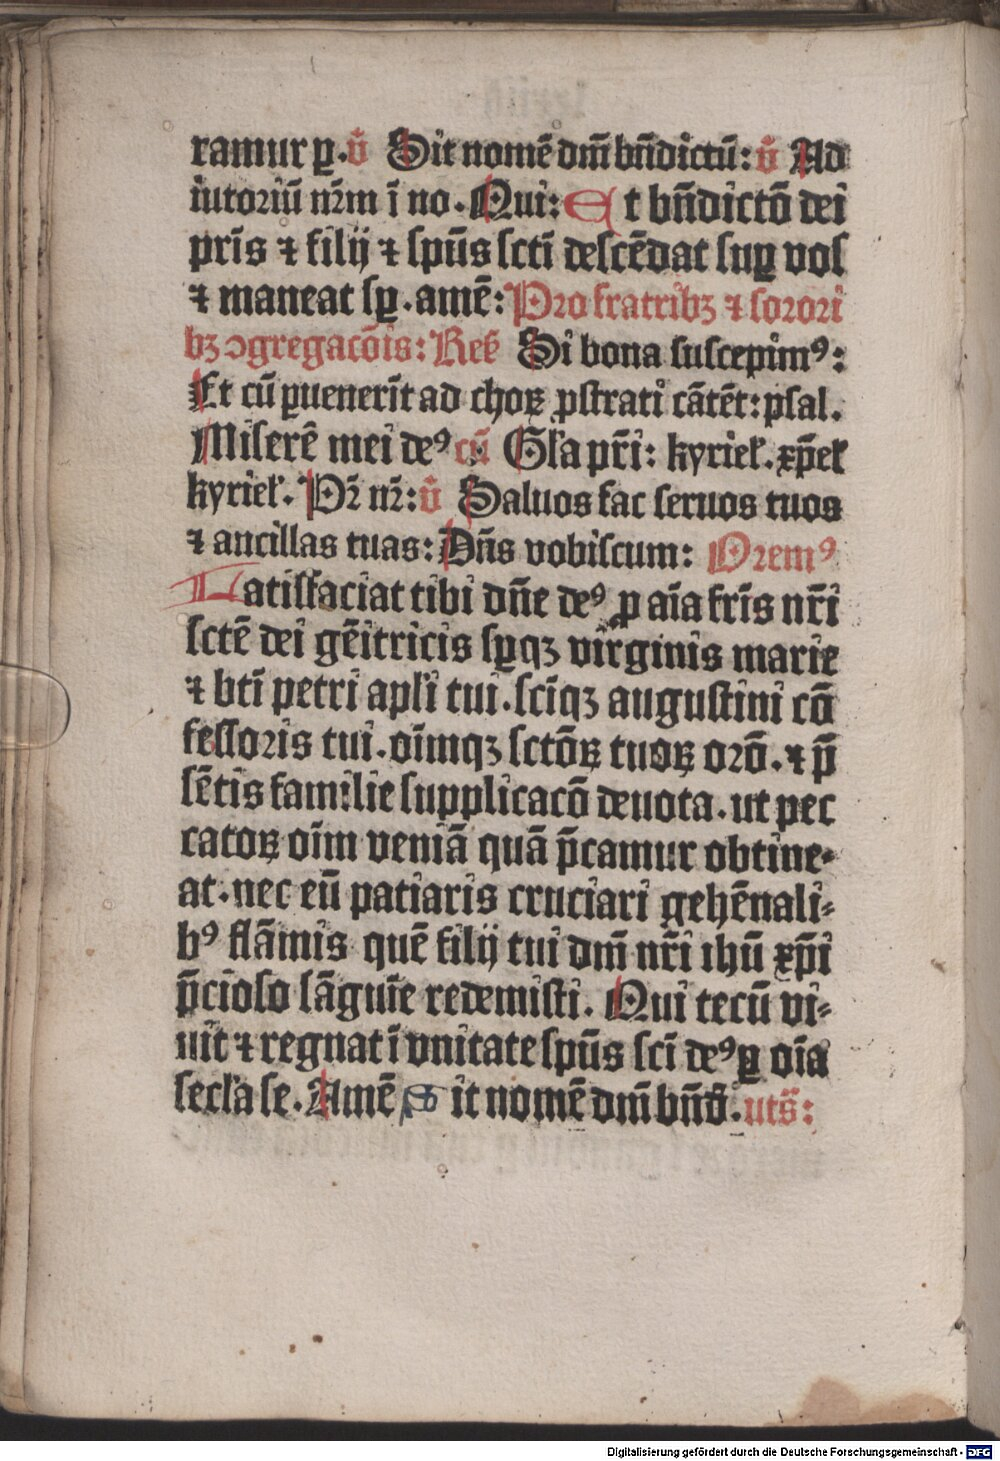 ramur ꝑ. v̄ Sit nomē dn̄i bn̄dictū: v̄ Ad
iutoriū nr̄m ī no. Qui: Et bn̄dictō dei
pr̄is ⁊ filij ⁊ sp̄us sctī descēdat suꝑ vos
⁊ maneat sꝑ. amē: Pro fratribꝫ ⁊ sorori
bꝫ ꝯgregacōis: Res̄ Si bona suscepimꝰ:
Et cū ꝑuenerīt ad choꝝ ꝓstrati cātēt: psal.
Miserē mei deꝰ cū Gl'a pr̄i: kyriel'. xp̄el'
kyriel'. Pr̄ nr̄: v̄ Saluos fac seruos tuos
⁊ ancillas tuas: Dn̄s vobiscum: Oremꝰ
Satisfaciat tibi dn̄e deꝰ ꝓ aīa fr̄is nr̄i
sctē dei gēitricis sꝑqꝫ virginis marie
⁊ btī petri apl'i tui. scīqꝫ augustini cō
fessoris tui. oīmqꝫ sctōꝝ tuoꝝ orō. ⁊ p̄
sētis familie supplicacō deuota. ut pec
catoꝝ oīm veniā quā p̄camur obtine⸗
at. nec eū patiaris cruciari gehēnali⸗
bꝰ flāmis quē filij tui dn̄i nr̄i ihū xp̄i
p̄cioso sāguīe redemisti. Qui tecū vi⸗
uit ⁊ regnat ī vnitate sp̄us scī deꝰ ꝑ oīa
secl'a se. Amē Sit nomē dn̄i bn̄d̄. uts̄:
Digitalisierung gefördert durch die Deutsche Forschungsgemeinschaft - DFG